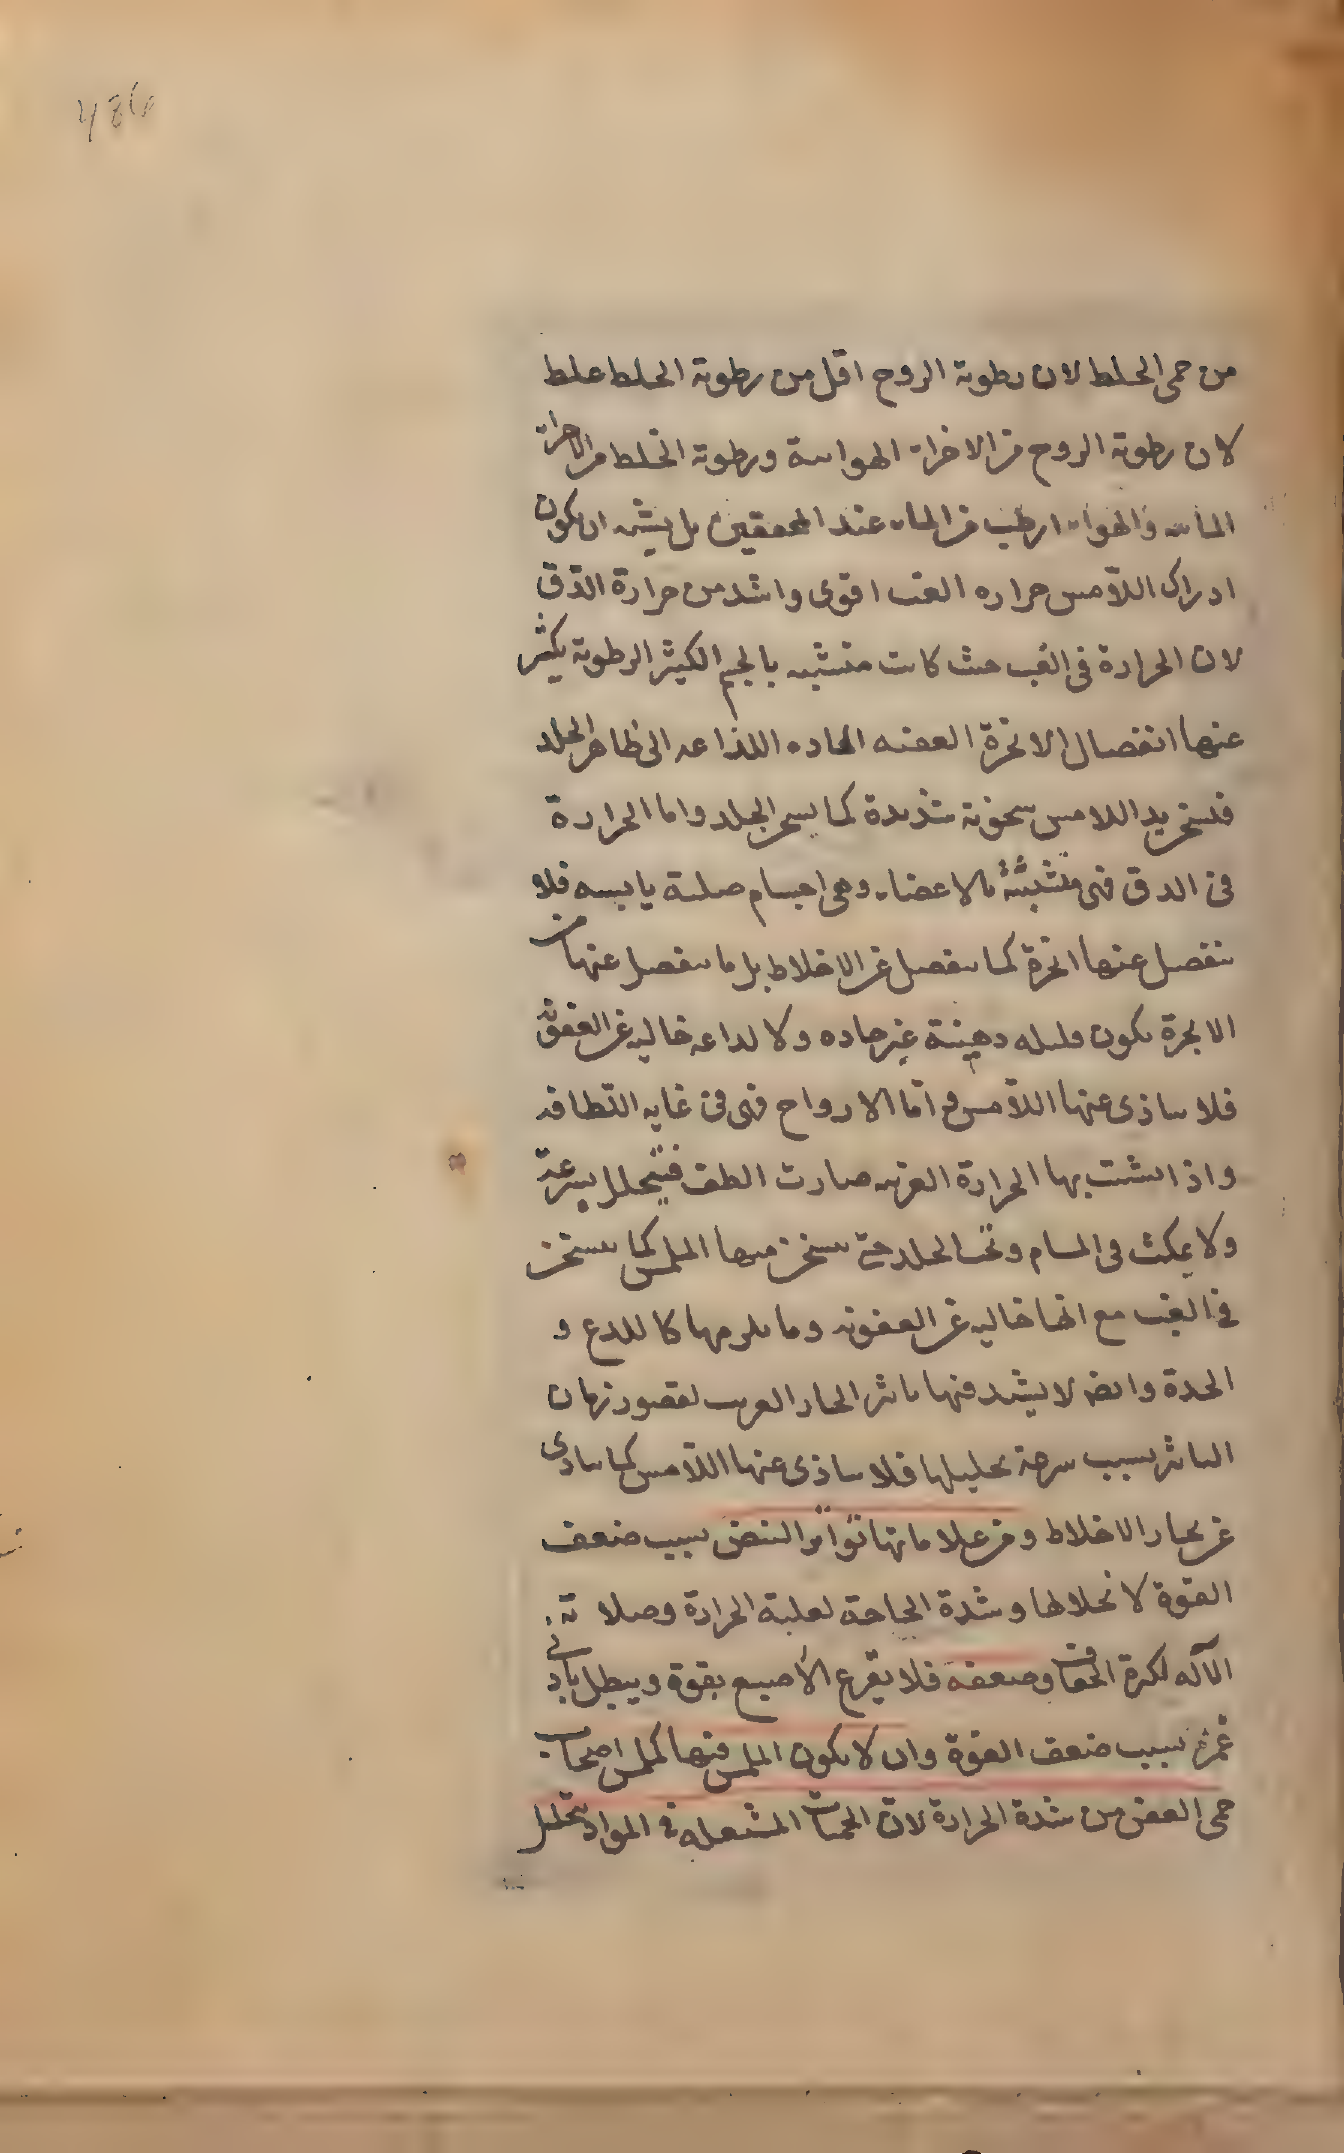 486
من حمى الخلط لان رطوبة الروح اقل من رطوبة الخلط غلط
لان رطوبة الروح من الاجزاء الهوائية ورطوبة الخلط من الاجزاء
المائية والهواء ارطب من الماء عند المحققين بل يشبه ان يكون
ادراك اللامس حراره الغب اقوى واشد من حرارة الدق
لان الحرارة فى الغب حيث كانت متشبثه بالجسم الكثير الرطوبة يكثر
عنها انفصال الابخرة العفنه الحاده اللذاعه الى ظاهر الجلد
فتسخن يد اللامس سخونة شديدة كما يسخن الجلد واما الحرارة
فى الدق فهى متشبثة بالاعضاء وهى اجسام صلبة يابسه فلا
تنفصل عنها ابخرة كما تنفصل عن الاخلاط بل ما ينفصل عنها من
الابخرة يكون قليله دهنية غير حاده ولا لذاعه خاليه عن العفونة
فلا يتاذى عنها اللامس واما الارواح فهى فى غايه اللطافه
واذا تشبثت بها الحرارة الغريبه صارت الطف فيتحلل بسرعة
ولا يمكث فى المسام وتحت الجلد حتى يسخن منها الملمس كما يسخن
فى الغب مع انها خاليه عن العفونه وما يلزمها كاللذع و
الحدة وايضا لا يشتد فيها تاثير الحار الغريب لقصور زمان
التاثير بسبب سرعة تحليلها فلا يتاذى عنها اللامس كما يتاذى
عن بخار الاخلاط ومن علاماتها تواتر النبض بسبب ضعف
القوة لانحلالها وشدة الحاجة لغلبة الحرارة وصلابة
الآله لكثرة الجفاف وضعفه فلا يقرع الاصبع بقوة ويبطل بادنى
غمز بسبب ضعف القوة وان لا يكون الملمس فيها كملمس اصحاب
حمى العفن من شدة الحرارة لان الحميات المشتعله فى المواد يتحلل